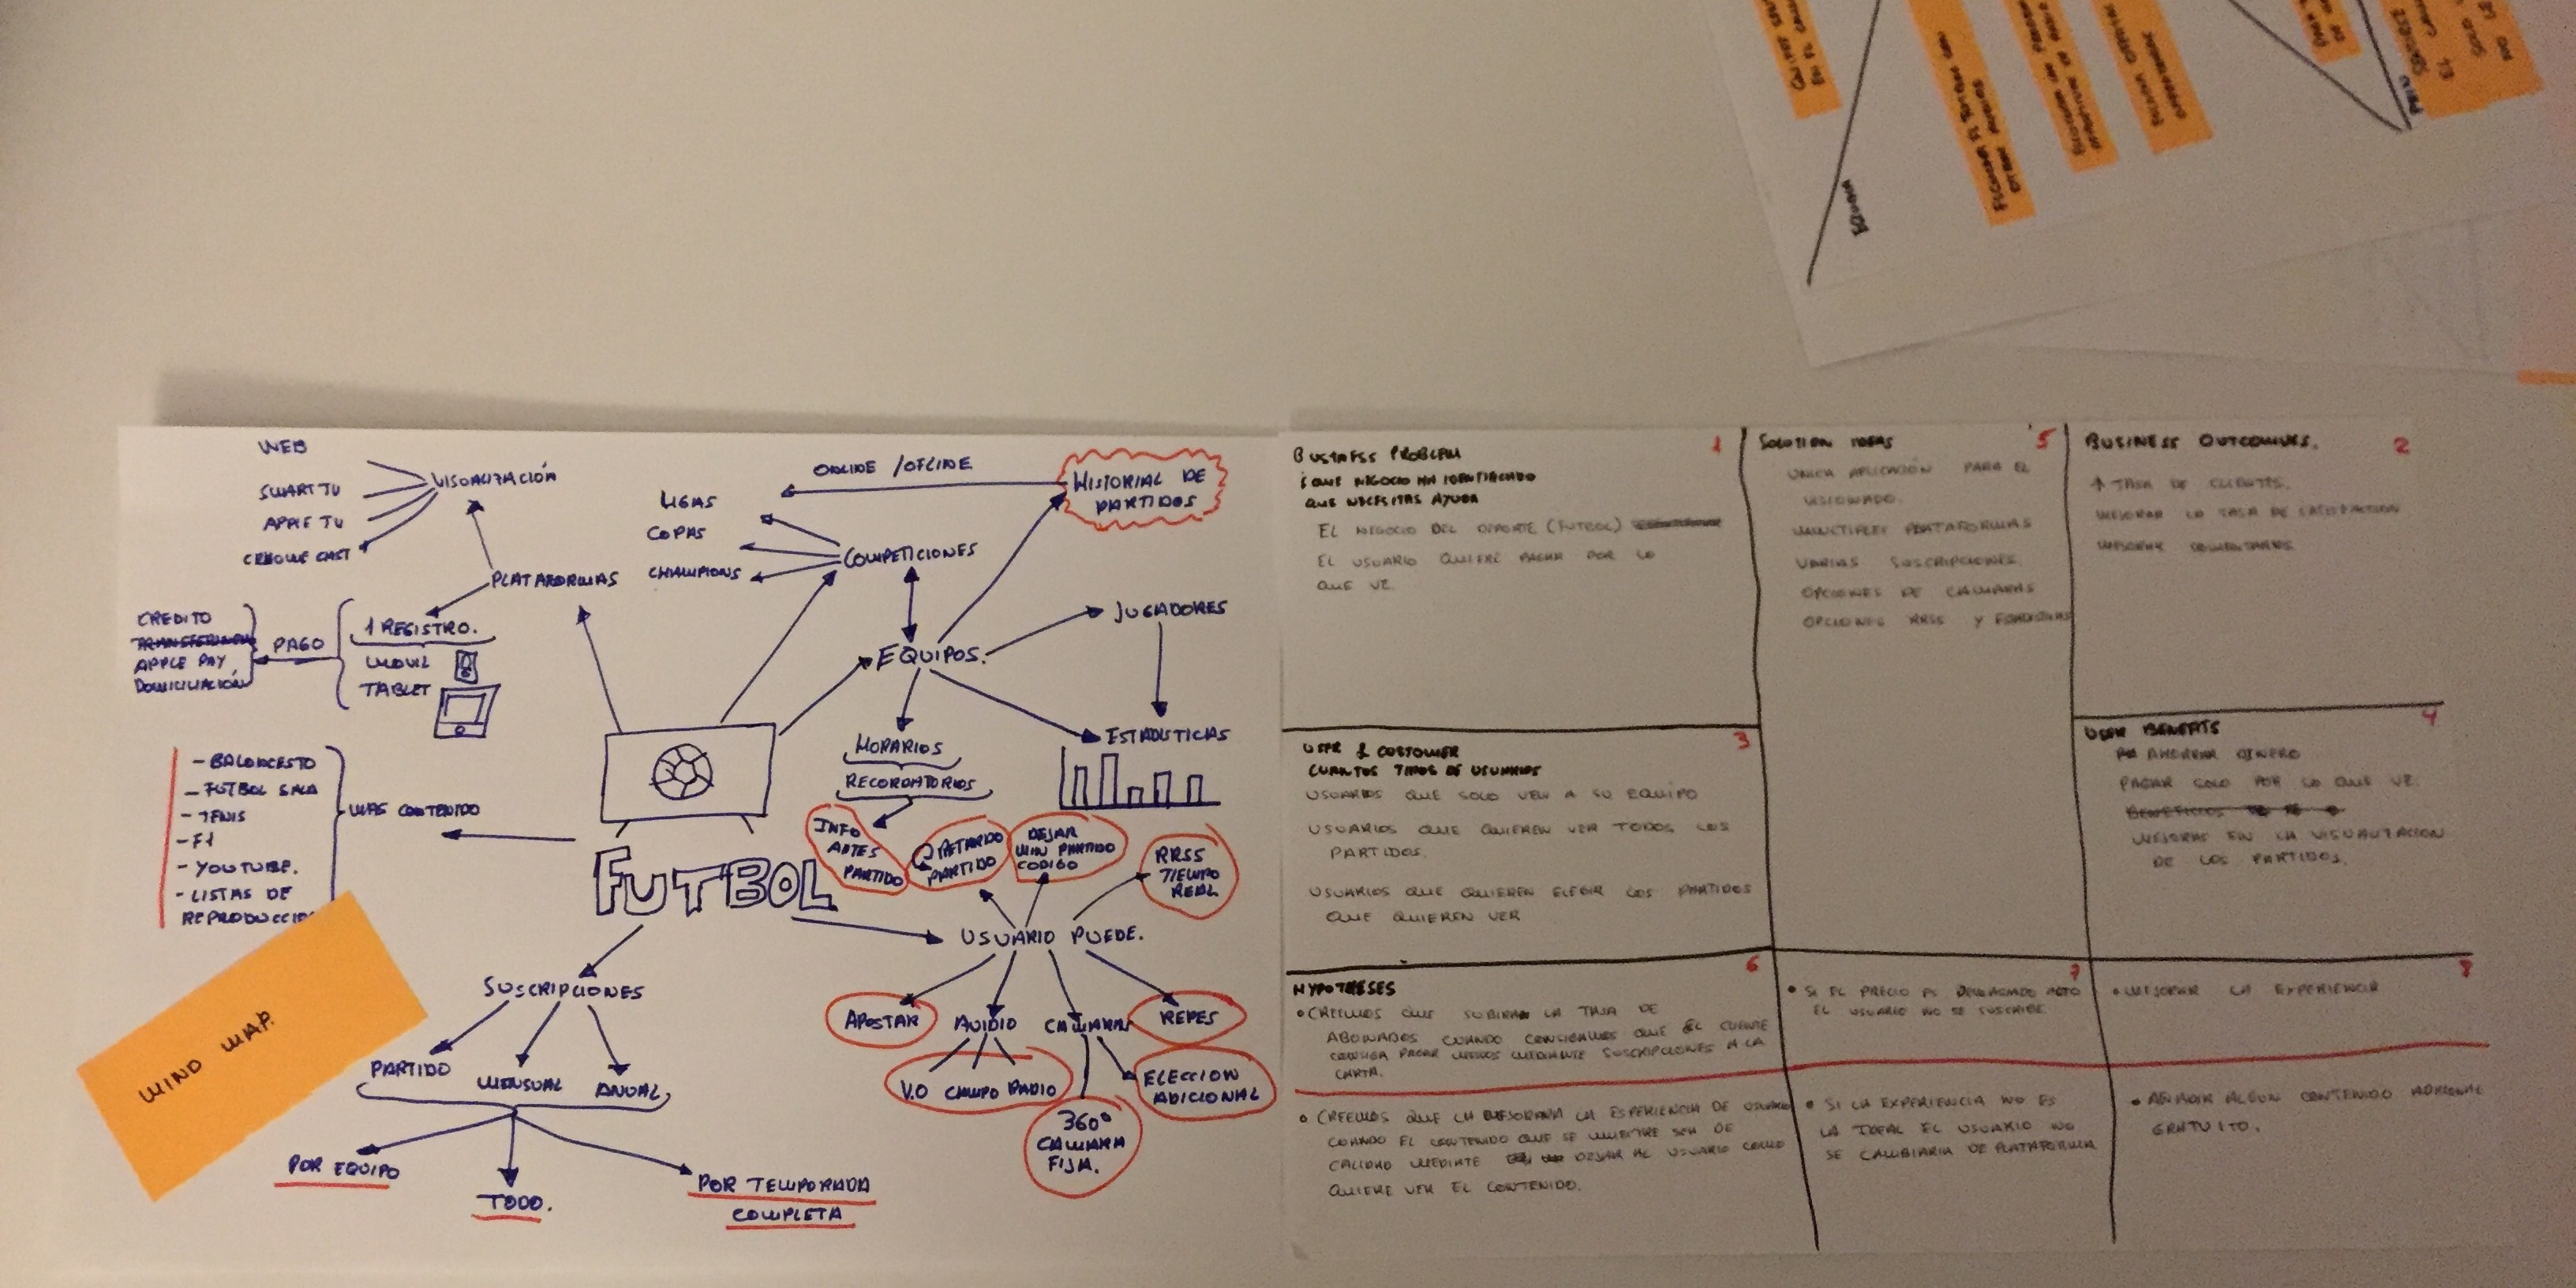 WEB
SMART TV
APPLE TV
CROME CAST
VISUALIZACIÓN
PLATAFORMAS
1 REGISTRO.
MOVIL
TABLET
PAGO
CREDITO
APPLE PAY,
DOMICILIACIÓN
- BALONCESTO
- FUTBOL SALA
- TENIS
- F1
- YOUTUBE.
- LISTAS DE
MAS CONTENIDO
ONLINE / OFLINE
HISTORIAL DE
PARTIDOS
LIGAS
COPAS
CHAMPIONS
COMPETICIONES
EQUIPOS.
JUGADORES
ESTADISTICAS
HORARIOS
RECORDATORIOS
INFO
ANTES
PARTIDO
RETARDO
PARTIDO
DEJAR
MIN PARTIDO
CODIGO
RRSS
TIEMPO
REAL
FUTBOL
USUARIO PUEDE.
APOSTAR
AUIDIO
CAMARAS
REPES
V.O CAMPO RADIO
360º
CAMARA
FIJA.
ELECCION
ADICIONAL
SUSCRIPCIONES
PARTIDO
MENSUAL
ANUAL
POR EQUIPO
TODO.
POR TEMPORADA
COMPLETA
MIND MAP.
BUSINESS PROBLEM 1
¿QUE NEGOCIO HA IDENTIFICADO
QUE NECESITAS AYUDA
EL NEGOCIO DEL DEPORTE (FUTBOL)
EL USUARIO QUIERE PAGAR POR LO
QUE VE.
SOLUTION IDEAS 5
UNICA APLICACIÓN PARA EL
VISIONADO.
MULTIPLES PLATAFORMAS
VARIAS SUSCRIPCIONES.
OPCIONES DE CAMARAS
OPCIONES RRSS Y
BUSINESS OUTCOMES. 2
↑ TASA DE CLIENTES.
MEJORAR LA TASA DE SATISFACTION
MEJORAR COMENTARIOS
USER & CUSTOMER 3
CUANTOS TIPOS DE USUARIOS
USUARIOS QUE SOLO VEN A SU EQUIPO
USUARIOS QUE QUIEREN VER TODOS LOS
PARTIDOS.
USUARIOS QUE QUIEREN ELEGIR LOS PARTIDOS
QUE QUIEREN VER
USER BENEFITS 4
AHORRAR DINERO
PAGAR SOLO POR LO QUE VE.
MEJORAS EN LA VISUALIZACION
DE LOS PARTIDOS.
HYPOTHESES 6
• CREEMOS QUE SUBIRA LA TASA DE
ABONADOS CUANDO CONSIGAMOS QUE EL CLIENTE
CONSIGA PAGAR MENOS MEDIANTE SUSCRIPCIONES A LA
CARTA.
• CREEMOS QUE LA MEJORARA LA ESPERIENCIA DE USUARIO
CUANDO EL CONTENIDO QUE SE MUESTRE SEA DE
CALIDAD MEDIANTE DEJAR AL USUARIO COMO
QUIERE VER EL CONTENIDO.
7
• SI EL PRECIO ES DEMASIADO ALTO
EL USUARIO NO SE SUSCRIBE
• SI LA EXPERIENCIA NO ES
LA IDEAL EL USUARIO NO
SE CAMBIARIA DE PLATAFORMA
8
• MEJORAR LA EXPERIENCIA
• AÑADIR ALGUN CONTENIDO ADICIONAL
GRATUITO.